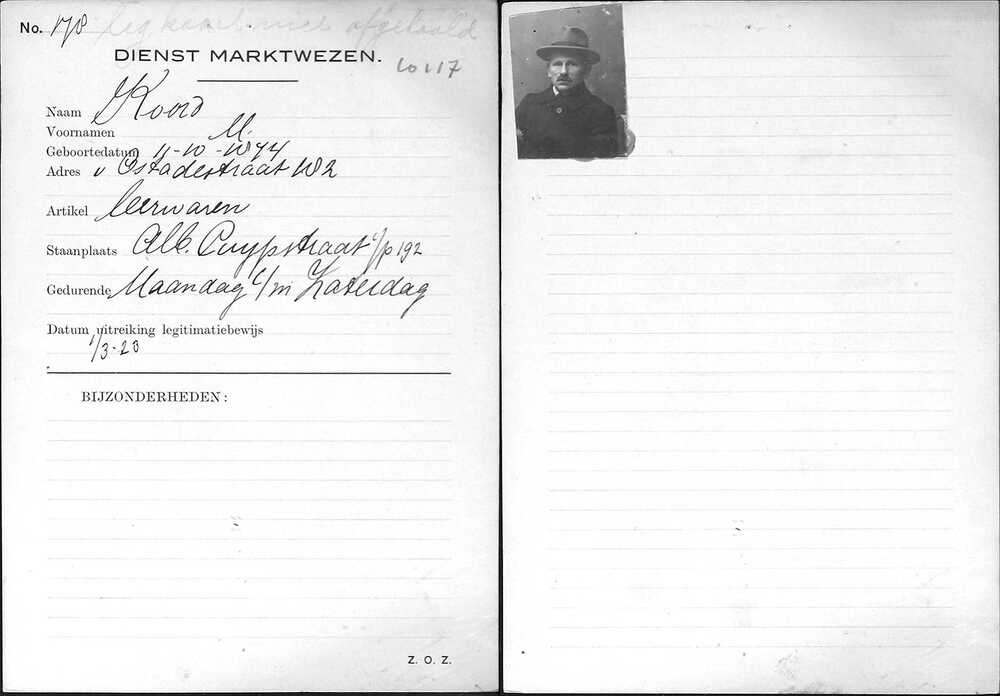 No. 178 Leg. kaart niet afgehaald
DIENST MARKTWEZEN.
10117
Naam Koord
Voornamen M.
Geboortedatum 11-10-1874
Adres v Ostadestraat 182
Artikel leerwaren
Staanplaats Alb. Cuypstraat t/p 192
Gedurende Maandag t/m Zaterdag
Datum uitreiking legitimatiebewijs
1/3-23
BIJZONDERHEDEN:
Z. O. Z.